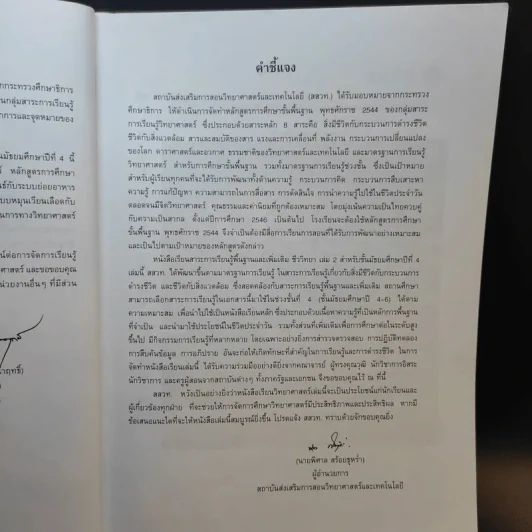 กกระทรวงศึกษาธิการ
นกลุ่มสาระการเรียนรู้
กการและจุดหมายของ
มัธยมศึกษาปีที่ 4 นี้
หลักสูตรการศึกษา
ธ์กับระบบย่อยอาหาร
บบหมุนเวียนเลือดกับ
นการทางวิทยาศาสตร์
น์ต่อการจัดการเรียนรู้
าศาสตร์ และขอขอบคุณ
น่วยงานอื่นๆ ที่มีส่วน
คำชี้แจง
สถาบันส่งเสริมการสอนวิทยาศาสตร์และเทคโนโลยี (สสวท.) ได้รับมอบหมายจากกระทรวง
ศึกษาธิการ ให้ดำเนินการจัดทำหลักสูตรการศึกษาขั้นพื้นฐาน พุทธศักราช 2544 ของกลุ่มสาระ
การเรียนรู้วิทยาศาสตร์ ซึ่งประกอบด้วยสาระหลัก 8 สาระคือ สิ่งมีชีวิตกับกระบวนการดำรงชีวิต
ชีวิตกับสิ่งแวดล้อม สารและสมบัติของสาร แรงและการเคลื่อนที่ พลังงาน กระบวนการเปลี่ยนแปลง
ของโลก ดาราศาสตร์และอวกาศ ธรรมชาติของวิทยาศาสตร์และเทคโนโลยี และมาตรฐานการเรียนรู้
วิทยาศาสตร์ สำหรับการศึกษาขั้นพื้นฐาน รวมทั้งมาตรฐานการเรียนรู้ช่วงชั้น ซึ่งเป็นเป้าหมาย
สำหรับผู้เรียนทุกคนที่จะได้รับการพัฒนาทั้งด้านความรู้ กระบวนการคิด กระบวนการสืบเสาะหา
ความรู้ การแก้ปัญหา ความสามารถในการสื่อสาร การตัดสินใจ การนำความรู้ไปใช้ในชีวิตประจำวัน
ตลอดจนมีจิตวิทยาศาสตร์ คุณธรรมและค่านิยมที่ถูกต้องเหมาะสม โดยมุ่งเน้นความเป็นไทยควบคู่
กับความเป็นสากล ตั้งแต่ปีการศึกษา 2546 เป็นต้นไป โรงเรียนจะต้องใช้หลักสูตรการศึกษา
ขั้นพื้นฐาน พุทธศักราช 2544 จึงจำเป็นต้องมีสื่อการเรียนการสอนที่ได้รับการพัฒนาอย่างเหมาะสม
และเป็นไปตามเป้าหมายของหลักสูตรดังกล่าว
หนังสือเรียนสาระการเรียนรู้พื้นฐานและเพิ่มเติม ชีววิทยา เล่ม 2 สำหรับชั้นมัธยมศึกษาปีที่ 4
เล่มนี้ สสวท. ได้พัฒนาขึ้นตามมาตรฐานการเรียนรู้ ในสาระการเรียนรู้เกี่ยวกับสิ่งมีชีวิตกับกระบวนการ
ดำรงชีวิต และชีวิตกับสิ่งแวดล้อม ซึ่งสอดคล้องกับสาระการเรียนรู้พื้นฐานและเพิ่มเติม สถานศึกษา
สามารถเลือกสาระการเรียนรู้ในเอกสารนี้มาใช้ในช่วงชั้นที่ 4 (ชั้นมัธยมศึกษาปี 4-6) ได้ตาม
ความเหมาะสม เพื่อนำไปใช้เป็นหนังสือเรียนหลัก ซึ่งประกอบด้วยเนื้อหาความรู้ที่เป็นหลักการพื้นฐาน
ที่จำเป็น และนำมาใช้ประโยชน์ในชีวิตประจำวัน รวมทั้งส่วนที่เพิ่มเติมเพื่อการศึกษาต่อในระดับสูง
ขึ้นไป มีกิจกรรมการเรียนรู้ที่หลากหลาย โดยเฉพาะอย่างยิ่งการสำรวจตรวจสอบ การปฏิบัติทดลอง
การสืบค้นข้อมูล การอภิปราย อันจะก่อให้เกิดทักษะที่สำคัญในการเรียนรู้และการดำรงชีวิต ในการ
จัดทำหนังสือเรียนเล่มนี้ ได้รับความร่วมมืออย่างดียิ่งจากคณาจารย์ ผู้ทรงคุณวุฒิ นักวิชาการอิสระ
นักวิชาการ และครูผู้สอนจากสถาบันต่างๆ ทั้งภาครัฐและเอกชน จึงขอขอบคุณไว้ ณ ที่นี้
สสวท. หวังเป็นอย่างยิ่งว่าหนังสือเรียนเล่มนี้จะเป็นประโยชน์แก่นักเรียนและ
ผู้เกี่ยวข้องทุกฝ่าย ที่จะช่วยให้การจัดการศึกษาวิทยาศาสตร์มีประสิทธิภาพและประสิทธิผล หากมี
ข้อเสนอแนะใดที่จะให้หนังสือเล่มนี้สมบูรณ์ยิ่งขึ้น โปรดแจ้ง สสวท. ทราบด้วยจักขอบคุณยิ่ง
(นายพิศาล สร้อยธุหร่ำ)
ผู้อำนวยการ
สถาบันส่งเสริมการสอนวิทยาศาสตร์และเทคโนโลยี